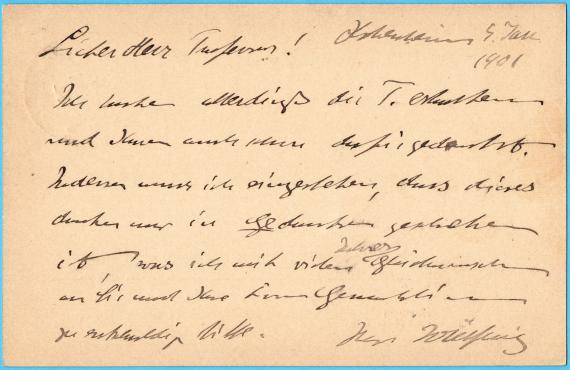 Lieber Herr Professor! Hohenheim 9. Jan
1901
Ich habe allerdings die T. erhalten
und Ihnen auch schon dafür gedankt.
Indessen muss ich eingestehen, dass dieses
danken nur in Gedanken geschehen
ist, was ich mit vielen
an Sie und Ihre Frau Gemahlin
zu entschuldigen bitte. Ihr